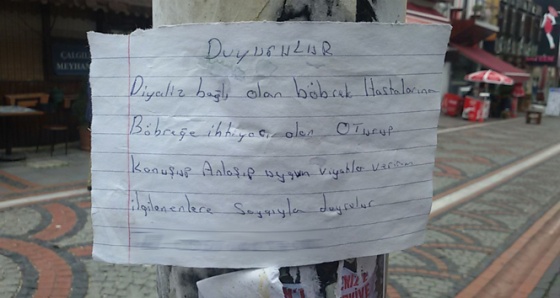 DUYURULUR
Diyaliz bağlı olan böbrek Hastalarının
Böbreğe ihtiyacı olan OTurup
Konuşup Anlaşıp uygun viyatla verilir
ilgilenenlere Saygıyla duyrulur
ÇALGILI
MEYHANE